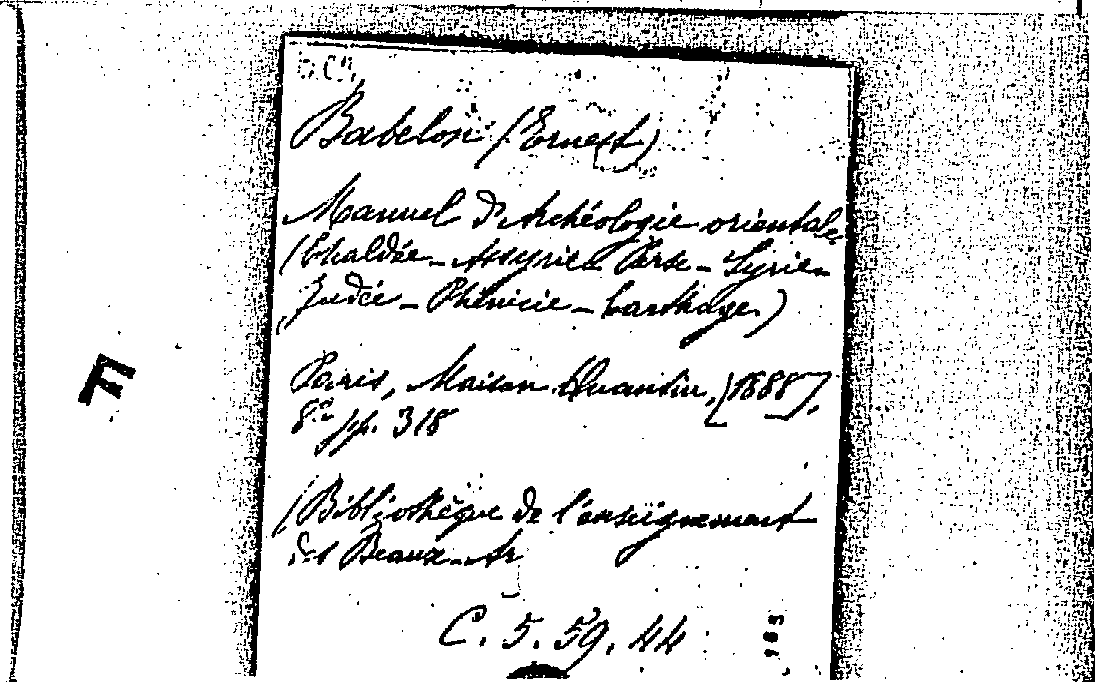 Babelon (Ernest)
Manuel d'Archéologie orientale
(Chaldée - Assyrie - Perse - Syrie -
Judée - Phénicie - Carthage)
F
Paris, Maison Quantin, [1888],
8° pp. 318
(Bibliothèque de l'enseignement
des Beaux-Ar
C. 5. 59. 44